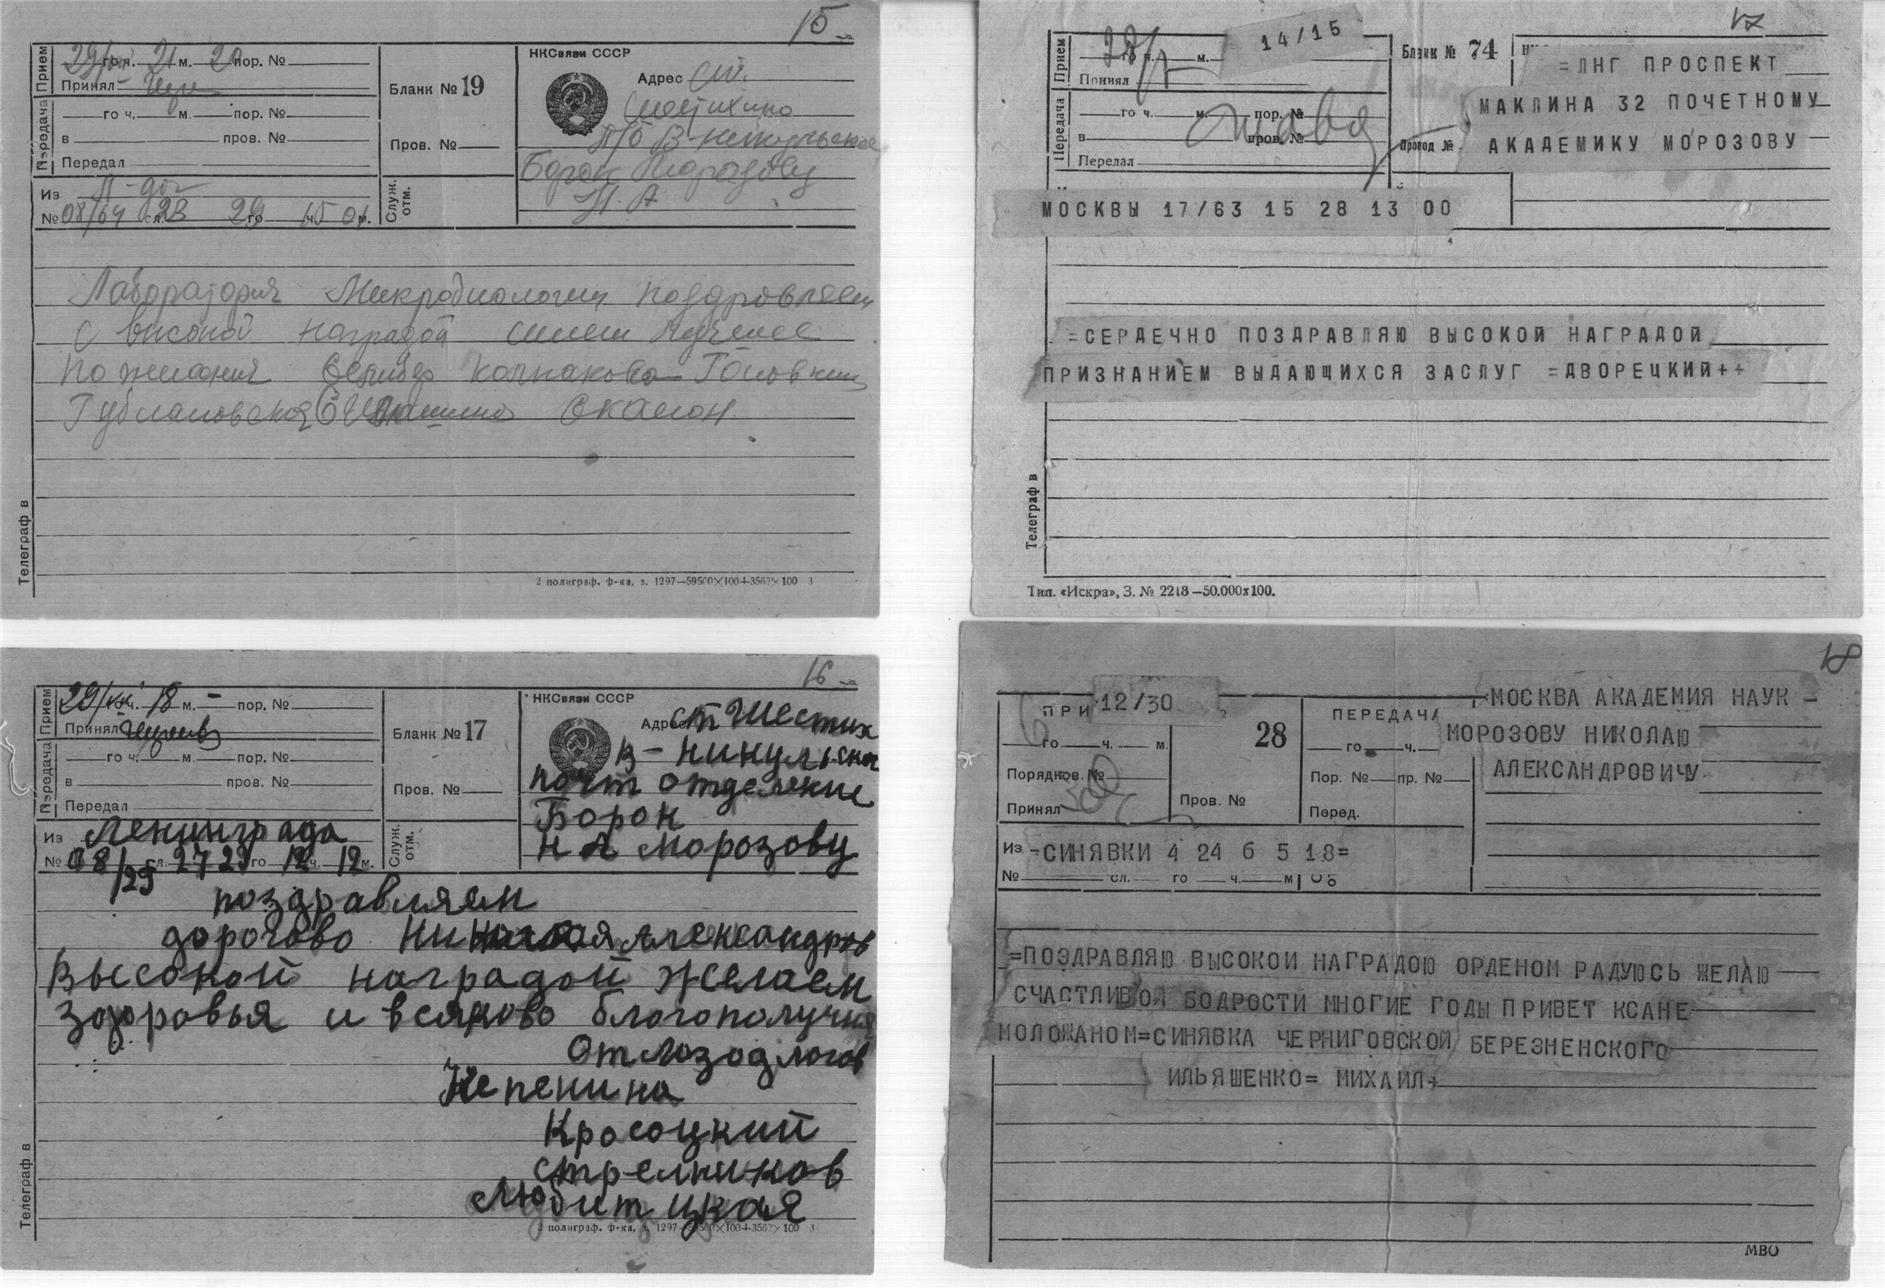 15
Прием
29/VII го ч. 21 м. 20 пор. №
Принял
Передача
го ч. м. пор. №
в пров. №
Передал
Из
№ 08/64 сл. 23 29 го 15 ч. 01 м.
Бланк № 19
Пров. №
Служ. отм.
НКСвязи СССР
Адрес ст.
Шестихино
П/О В-Никульское
Борок Морозову
Н. А
Лаборатория Микробиологии поздравляет
с высокой наградой шлет лучшие
пожелания Колпакова Головкин
Скалон.
Телеграф в
2 полиграф. ф-ка, з. 1297—59500×100+3562×100 3
17
14/15
Прием
28/ го ч. м.
Принял
Передача
го ч. м. пор. №
в пров. №
Передал
Бланк № 74
Провод №
=ЛНГ ПРОСПЕКТ
МАКЛИНА 32 ПОЧЕТНОМУ
АКАДЕМИКУ МОРОЗОВУ
МОСКВЫ 17/63 15 28 13 00
=СЕРДЕЧНО ПОЗДРАВЛЯЮ ВЫСОКОЙ НАГРАДОЙ
ПРИЗНАНИЕМ ВЫДАЮЩИХСЯ ЗАСЛУГ =ДВОРЕЦКИЙ++
Телеграф в
Тип. «Искра», З. № 2218—50.000х100.
16
Прием
29/VII ч. 18 м. — пор. №
Принял
Передача
го ч. м. пор. №
в пров. №
Передал
Из Ленинграда
№ 08/29 сл. 27 29 го 12 ч. 12 м.
Бланк № 17
Пров. №
Служ. отм.
НКСвязи СССР
Адрес ст Шестих
В-Никульское
почт отделение
Борок
Н А Морозову
поздравляем
дорогово Николая Александров
высокой наградой желаем
здоровья и всяково благополучия
От
Непенина
Красоцкий
Стрелников
Любитцкая
Телеграф в
полиграф. ф-ка, з. 1297—59500×100+3562×100 3
18
ПРИ 12/30
го ч. м.
Порядков. №
Принял
28
Пров. №
ПЕРЕДАЧА
го ч.
Пор. № пр. №
Перед.
МОСКВА АКАДЕМИЯ НАУК
МОРОЗОВУ НИКОЛАЮ
АЛЕКСАНДРОВИЧУ
Из СИНЯВКИ 4 24 6 5 18=
№ сл. го ч. м
=ПОЗДРАВЛЯЮ ВЫСОКОЙ НАГРАДОЮ ОРДЕНОМ РАДУЮСЬ ЖЕЛАЮ
СЧАСТЛИВОЙ БОДРОСТИ МНОГИЕ ГОДЫ ПРИВЕТ КСАНЕ
МОЛОЖАНОМ=СИНЯВКА ЧЕРНИГОВСКОЙ БЕРЕЗНЕНСКОГО
ИЛЬЯШЕНКО= МИХАИЛ+
МВО